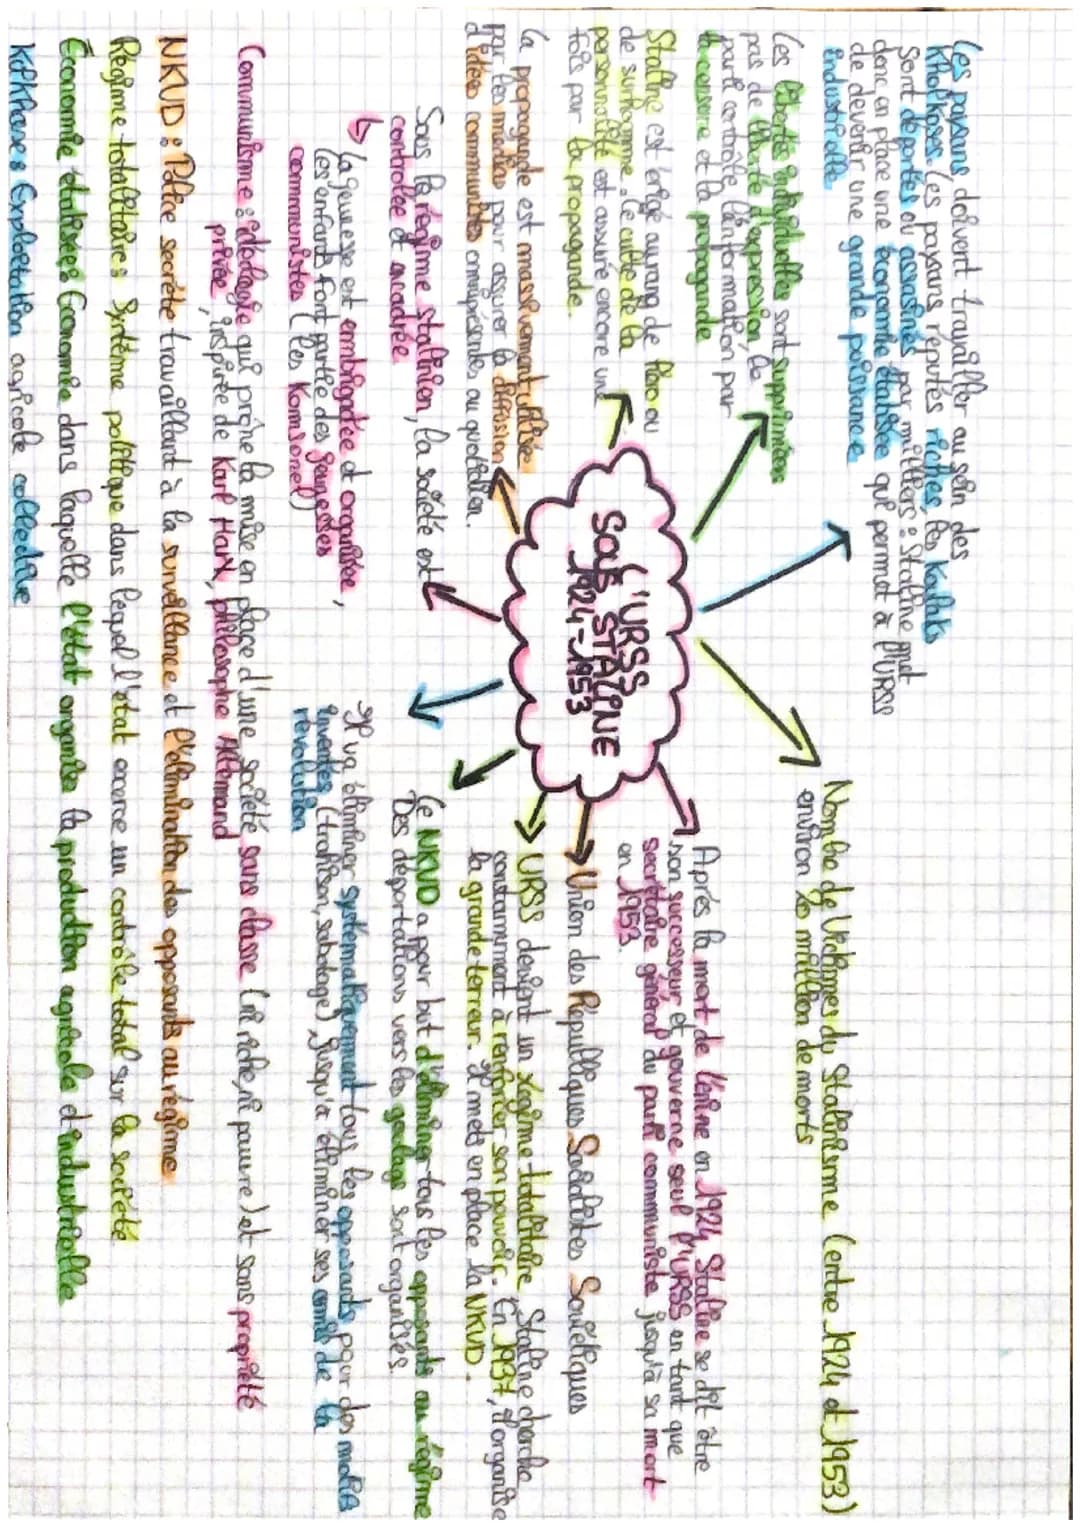 L'URSS
SOUS STALINE
1924-1953
Nombre de Victimes du Stalinisme (entre 1924 et 1953)
environ 20 million de morts
Après la mort de Lénine en 1924 Staline se dit être
son successeur et gouverne seul l'URSS en tant que
secrétaire général du parti communiste jusqu'à sa mort
en 1953.
Union des Républiques Socialistes Soviétiques
URSS devient un régime totalitaire Staline cherche
constamment à renforcer son pouvoir. En 1937, il organise
la grande terreur. Il mets en place la NKUD.
Le NKUD a pour but d'éliminer tous les opposants au régime
Des déportations vers les goulags sont organisés.
Il va éliminer systématiquement tous les opposants pour des motifs
inventés (trahison, sabotage), jusqu'à éliminer ses amis de la
révolution
Les paysans doivent travailler au sein des
Kholkozes (les paysans réputés riches, les Koulaks
sont déportés ou assasinés par milliers : Staline met
donc en place une économie étatisée qui permet à l'URSS
de devenir une grande puissance
industrielle
Les libertés individuelles sont supprimées
pas de liberté d'expression, le
parti contrôle l'information par
la censure et la propagande
Staline est érigé au rang de héro ou
de surhomme : le culte de la
personnalité est assuré encore une
fois par la propagande.
La propagande est massivement utilisée
par les médias pour assurer la diffusion
d'idées communistes omniprésentes au quotidien.
Sous le régime stalinien, la société est
contrôlée et encadrée
↳ La jeunesse est embrigadée et organisée,
les enfants font partie des jeunesses
communistes (les Komsomol)
Communisme : idéologie qui prône la mise en place d'une société sans classe (ni riche, ni pauvre) et sans propriété
privée, inspirée de Karl Marx, philosophe Allemand
NKUD : Police secrète travaillant à la surveillance et l'élimination des opposants au régime
Régime totalitaire : Système politique dans lequel l'état exerce un contrôle total sur la société
Économie étatisée : Economie dans laquelle l'état organise la production agricole et industrielle
Kolkhoze : Exploitation agricole collective